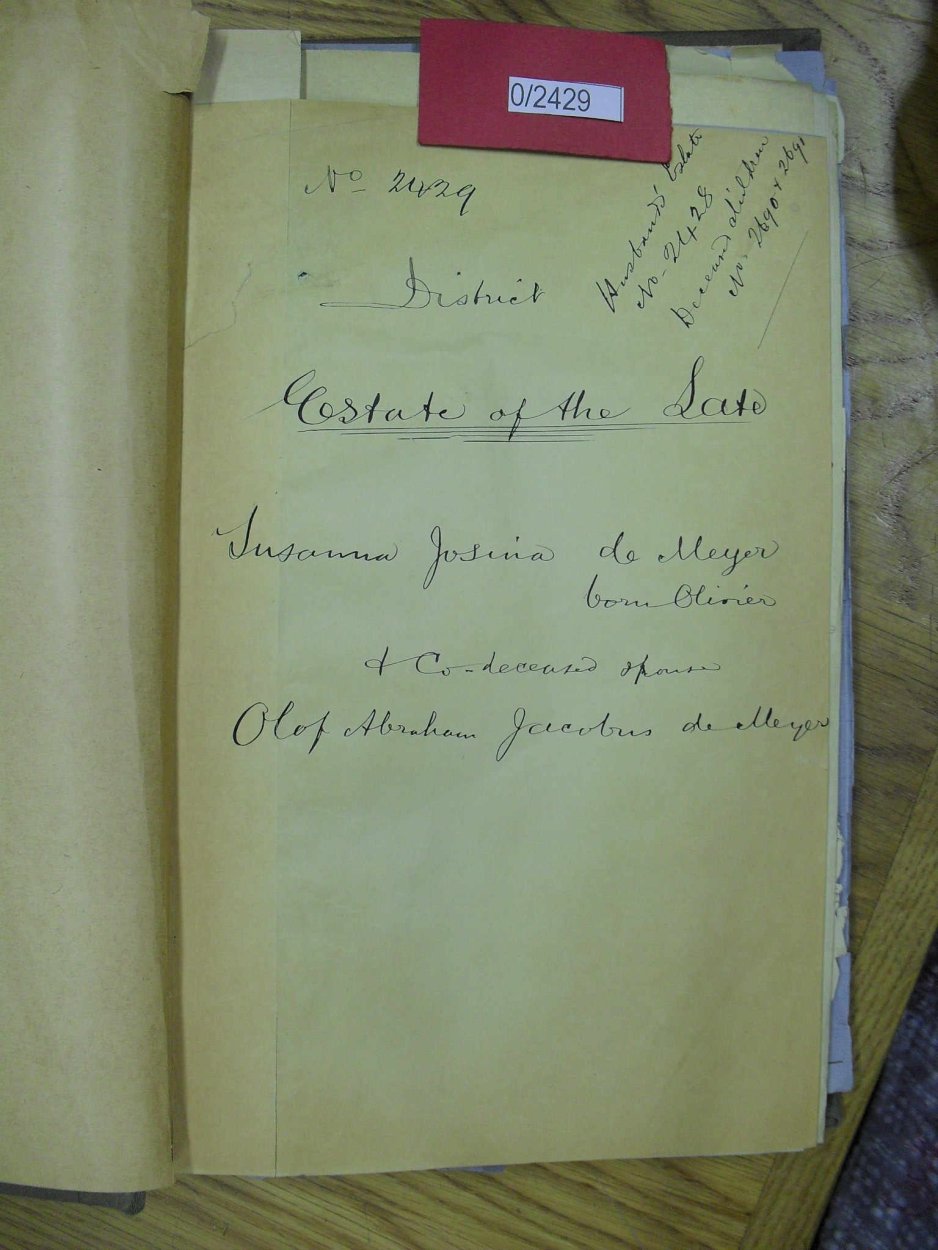 0/2429
No 2429
Husband's Estate
No. 2428
Deceased children
No. 2690 & 2691
District
Estate of the Late
Susanna Josina de Meyer
born Olivier
& Co-deceased spouse
Olof Abraham Jacobus de Meyer